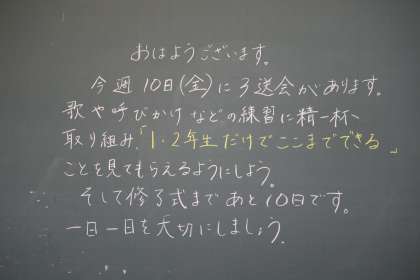 おはようございます。
今週10日(金)に3送会があります。
歌や呼びかけなどの練習に精一杯、
取り組み、「1・2年生だけでここまでできる」
ことを見てもらえるようにしよう。
そして修了式まであと10日です。
一日一日を大切にしましょう。